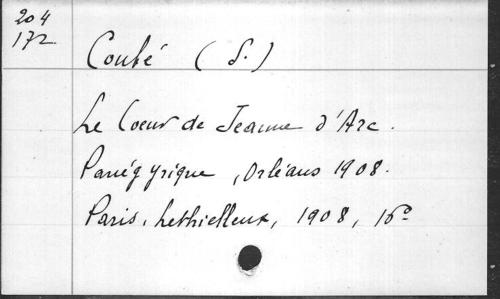 204
172
Coubé (S.)
Le Coeur de Jeanne d'Arc.
Panégyrique, Orléans 1908.
Paris, Lethielleux, 1908, 16°